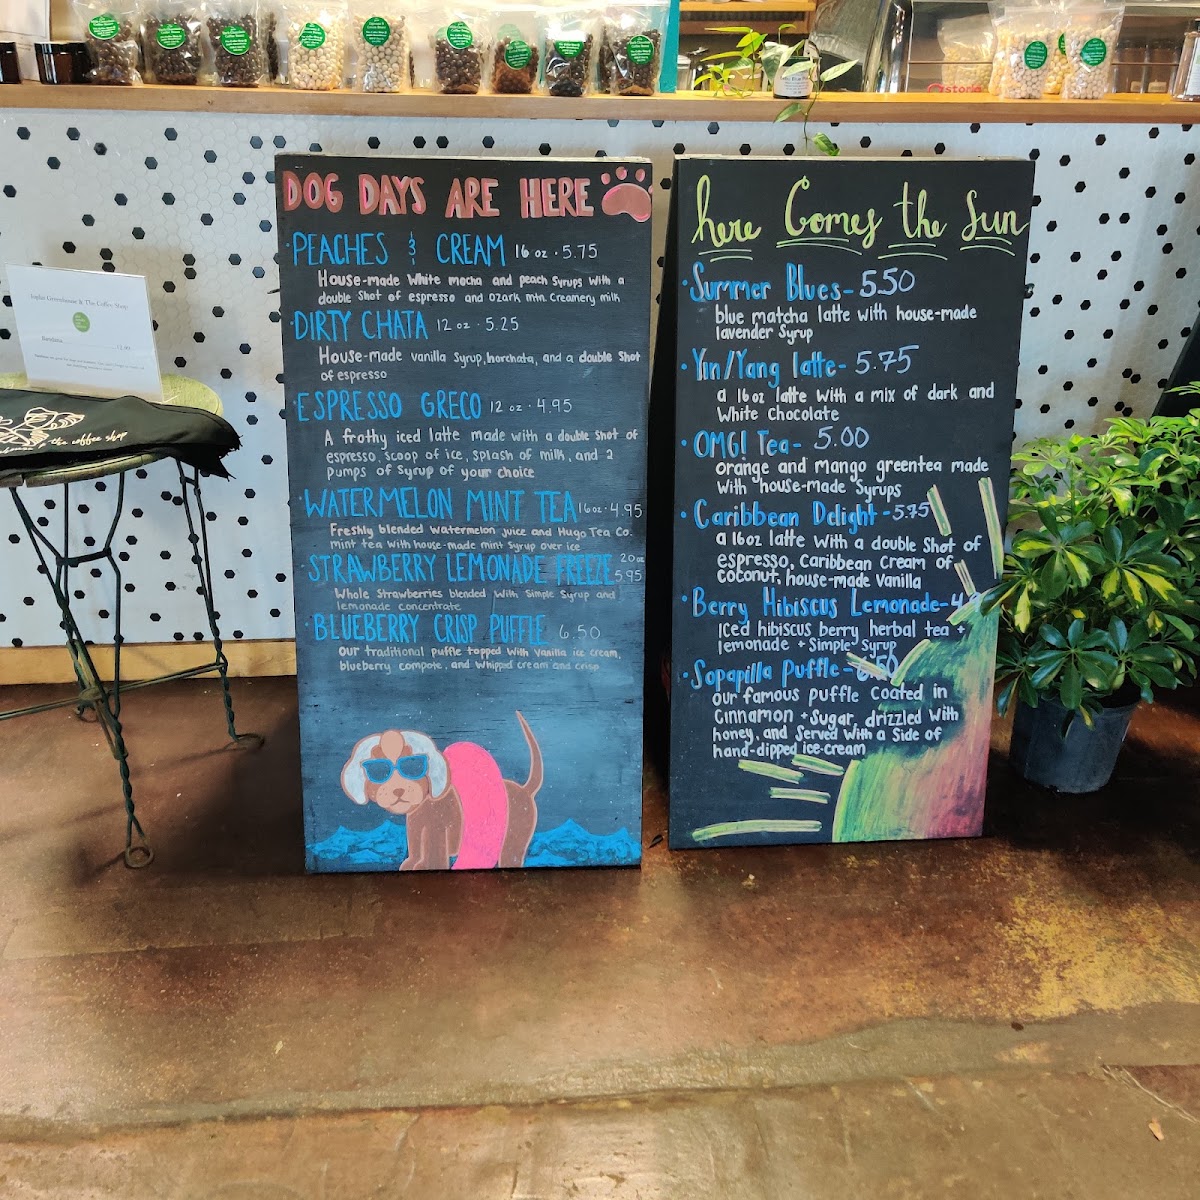 DOG DAYS ARE HERE
PEACHES & CREAM 16 oz · 5.75
House-made white mocha and peach syrups with a
double shot of espresso and Ozark mtn. Creamery milk
DIRTY CHATA 12 oz · 5.25
House-made vanilla syrup, horchata, and a double shot
of espresso
ESPRESSO GRECO 12 oz · 4.95
A frothy iced latte made with a double shot of
espresso, scoop of ice, splash of milk, and 2
pumps of syrup of your choice
WATERMELON MINT TEA 16oz · 4.95
Freshly blended watermelon juice and Hugo Tea Co.
mint tea with house-made mint syrup over ice
STRAWBERRY LEMONADE FREEZE 20oz 5.95
Whole strawberries blended with simple syrup and
lemonade concentrate
BLUEBERRY CRISP PUFFLE 6.50
our traditional puffle topped with vanilla ice cream,
blueberry compote, and whipped cream and crisp
here Comes the Sun
Summer Blues- 5.50
blue matcha latte with house-made
lavender syrup
Yin/Yang latte- 5.75
a 16oz latte with a mix of dark and
white chocolate
OMG! Tea- 5.00
orange and mango greentea made
with house-made syrups
Caribbean Delight - 5.75
a 16oz latte with a double shot of
espresso, Caribbean cream of
coconut, house-made vanilla
Berry Hibiscus Lemonade-
Iced hibiscus berry herbal tea +
lemonade + simple syrup
Sopapilla Puffle- 6.50
our famous puffle coated in
cinnamon + sugar, drizzled with
honey, and served with a side of
hand-dipped ice-cream
Joplin Greenhouse & The Coffee Shop
Bandana
& the coffee shop